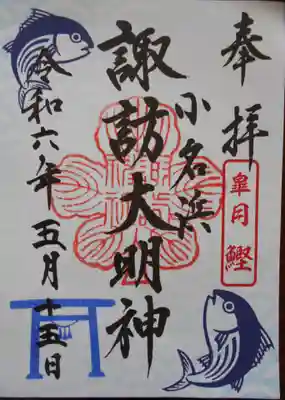 奉拝
皐月 鰹
小名浜
諏訪大明神
令和六年五月十五日